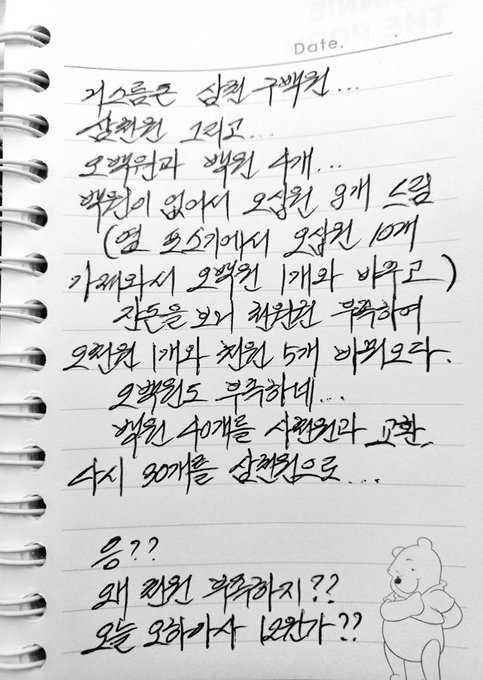 Date.
거스름돈 삼천 구백원...
삼천원 그리고...
오백원과 백원 4개...
백원이 없어서 오십원 8개 드림
(옆 포스기에서 오십원 10개
가져와서 오백원 1개와 바꾸고)
잔돈을 보니 천원권 부족하여
오천원 1개와 천원 5개 바꿔오다.
오백원도 부족하네...
백원 40개를 사천원과 교환,
다시 30개를 삼천원으로...
응??
왜 천원 부족하지??
오늘